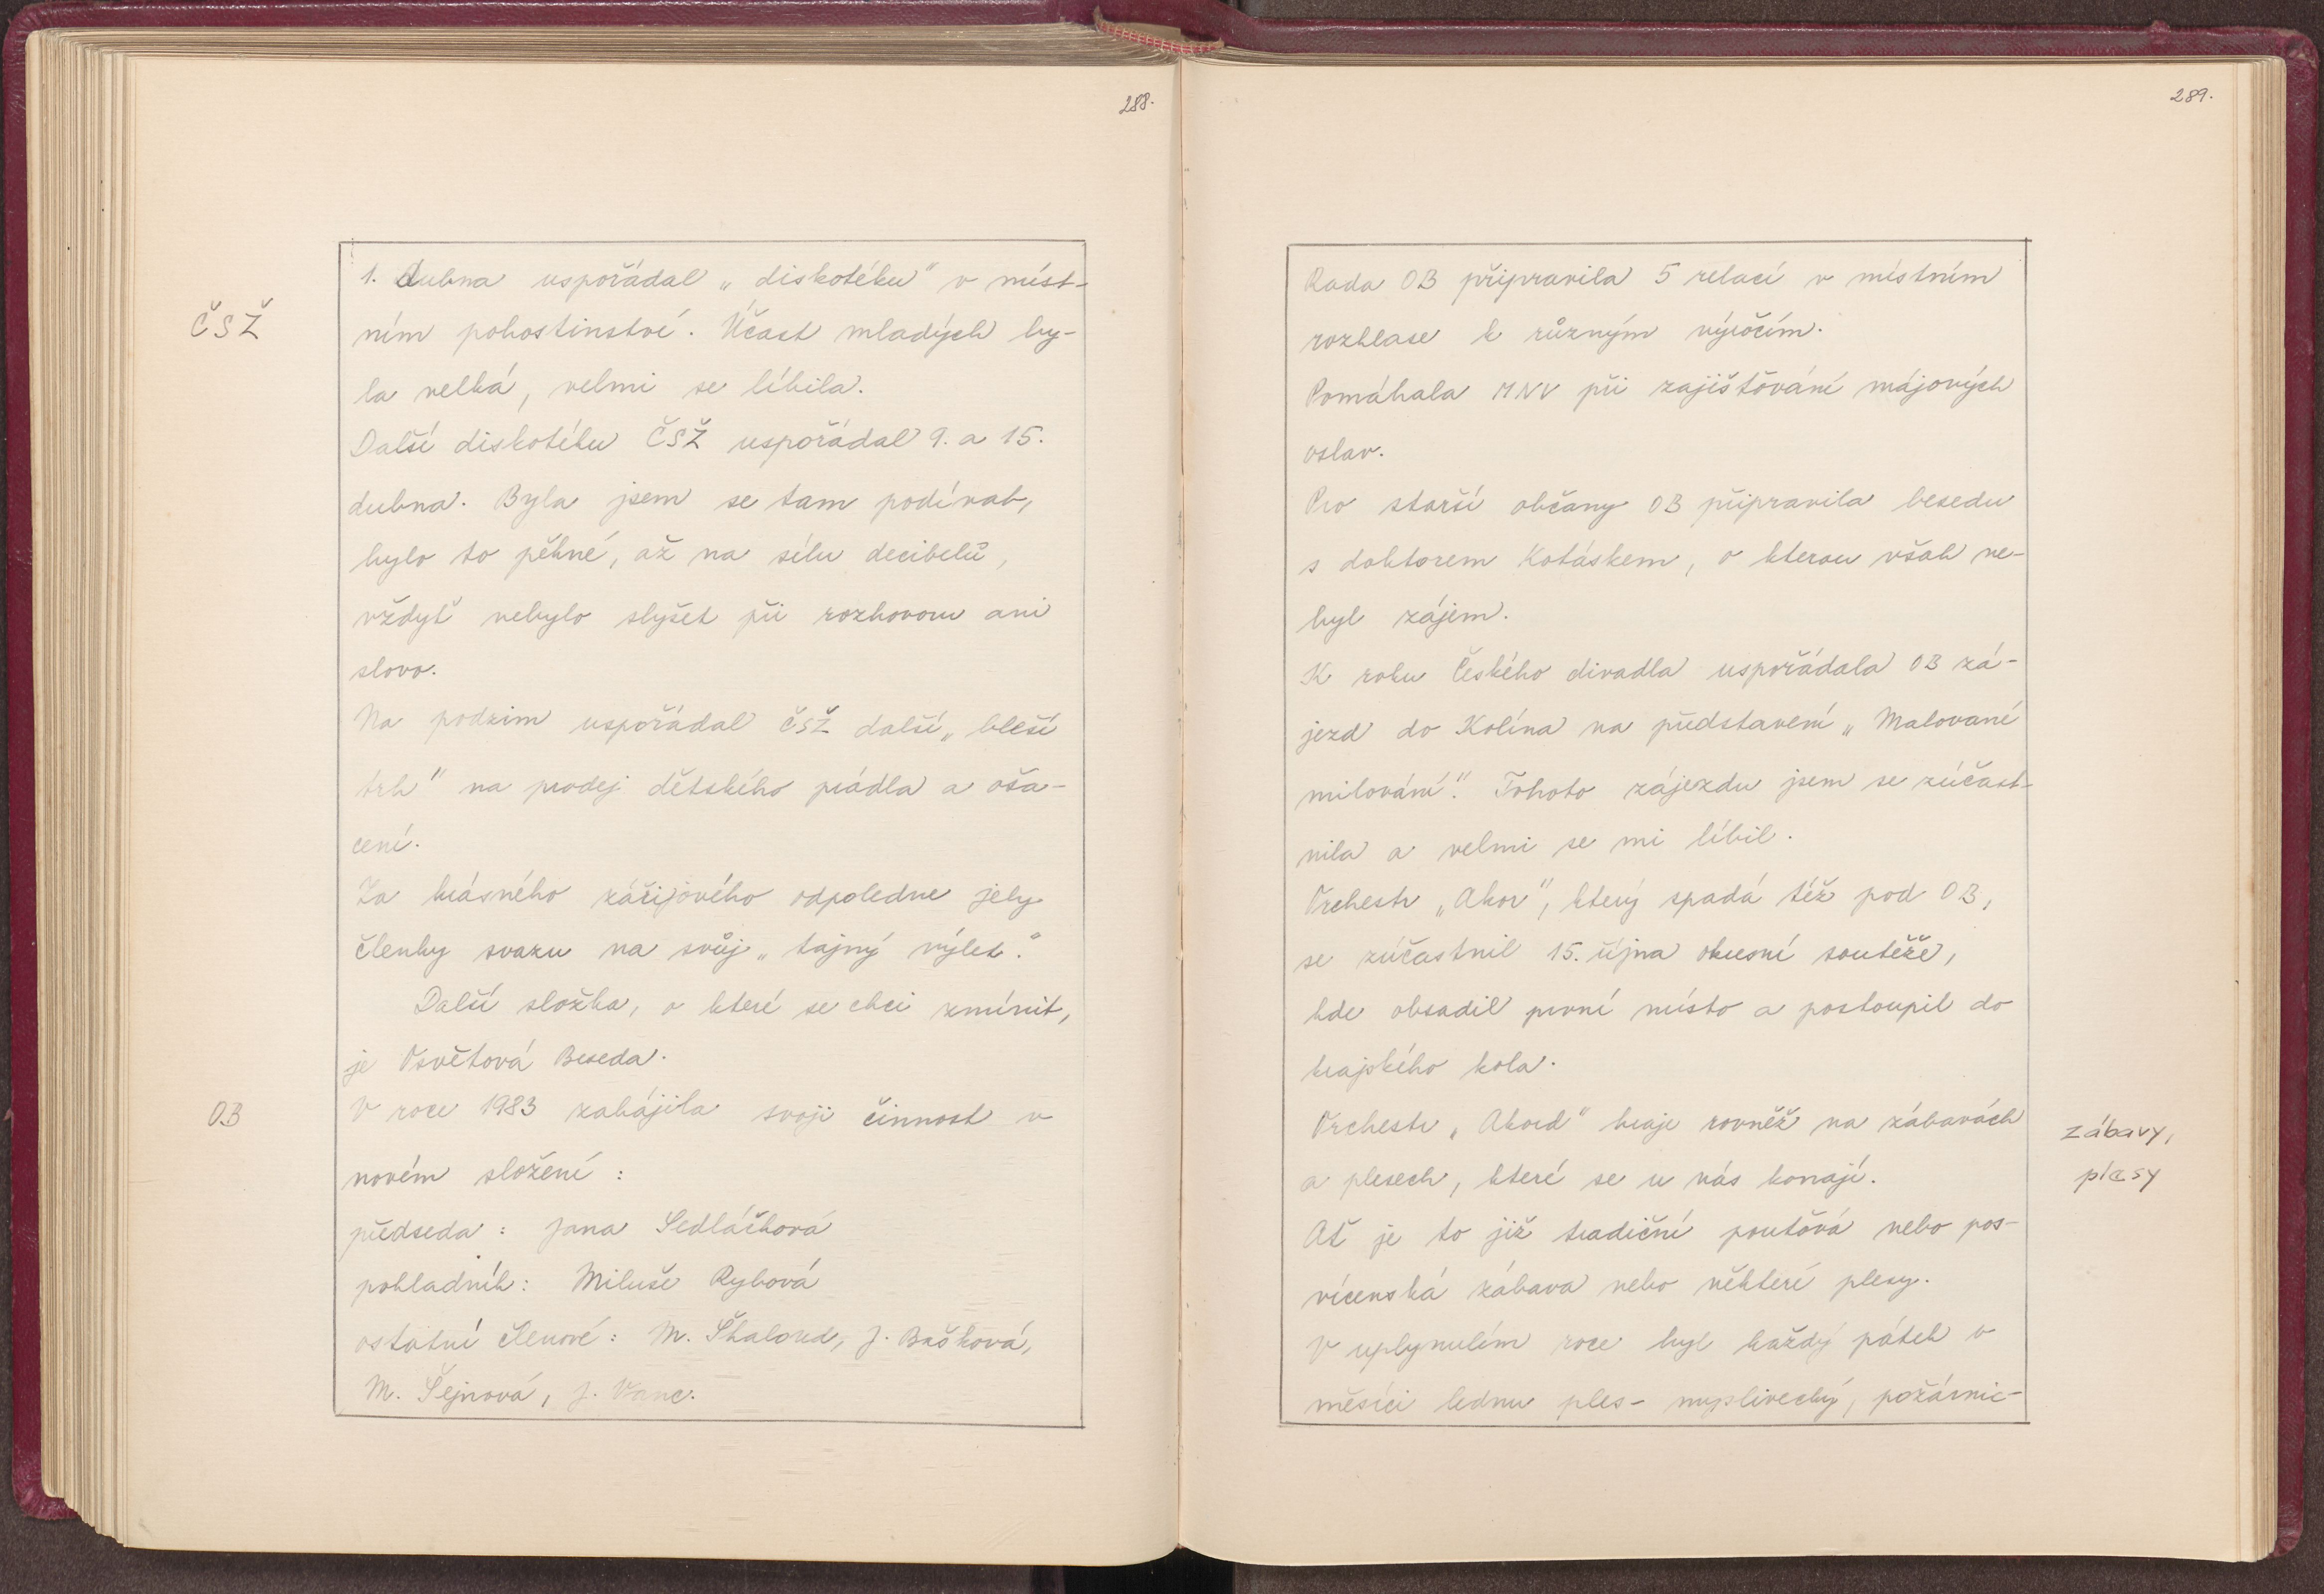 288.
ČSŽ
1. dubna uspořádal „diskotéku" v míst-
ním pohostinství. Účast mladých by-
la velká, velmi se líbila.
Další diskotéku ČSŽ uspořádal 9. a 15.
dubna. Byla jsem se tam podívat,
bylo to pěkné, až na sílu decibelů,
vždyť nebylo slyšet při rozhovoru ani
slovo.
Na podzim uspořádal ČSŽ další „bleší
trh" na prodej dětského prádla a oša-
cení.
Za krásného zářijového odpoledne jely
členky svazu na svůj „tajný výlet."
Další složka, o které se chci zmínit,
je Osvětová Beseda.
OB
V roce 1983 zahájila svoji činnost v
novém složení :
předseda : Jana Sedláčková
pokladník : Miluše Rybová
ostatní členové : M. Škaloud, J. Bašková,
M. Šejnová, J. Vanc.
289.
Rada OB připravila 5 relací v místním
rozhlase k různým výročím.
Pomáhala MNV při zajišťování májových
oslav.
Pro starší občany OB připravila besedu
s doktorem Kotáskem, o kterou však ne-
byl zájem.
K roku českého divadla uspořádala OB zá-
jezd do Kolína na představení „Malované
milování". Tohoto zájezdu jsem se zúčast-
nila a velmi se mi líbil.
Orchestr „Akor", který spadá též pod OB,
se zúčastnil 15. října okresní soutěže,
kde obsadil první místo a postoupil do
krajského kola.
Orchestr „Akord" hraje rovněž na zábavách
a plesech, které se u nás konají.
zábavy,
plesy
Ať je to již tradiční pouťová nebo pos-
vícenská zábava nebo některé plesy.
V uplynulém roce byl každý pátek v
měsíci lednu ples - myslivecký, požárnic-